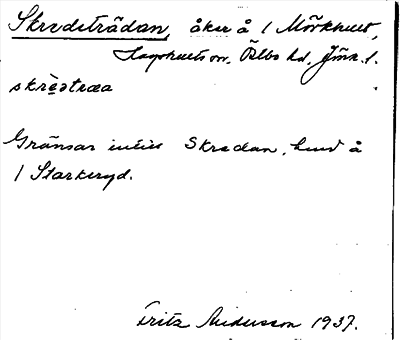 Skredeträdan, åker å 1 Mörkhult,
Lagshults sn. Ölbo hd. Jönk. l.
skrèstræa
Gränsar intill Skredan, lund å
1 Starkeryd.
Fritz Andersson 1937.